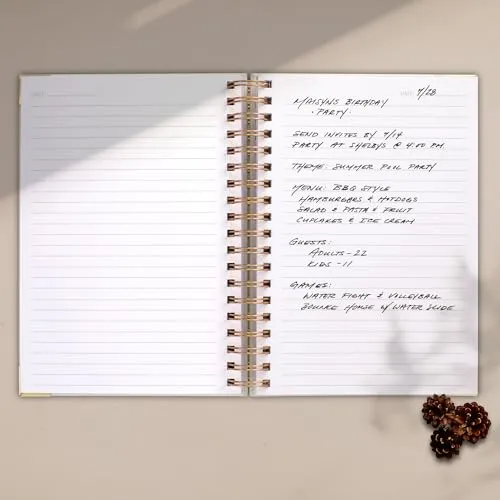 DATE:
DATE: 7/28
MAISYNS BIRTHDAY
· PARTY ·
SEND INVITES BY 7/14
PARTY AT SHELBYS @ 4:00 PM
THEME: SUMMER POOL PARTY
MENU: BBQ STYLE
HAMBURGERS & HOTDOGS
SALAD & PASTA & FRUIT
CUPCAKES & ICE CREAM
GUESTS:
ADULTS - 22
KIDS - 11
GAMES:
WATER FIGHT & VOLLEYBALL
BOUNCE HOUSE w/ WATER SLIDE